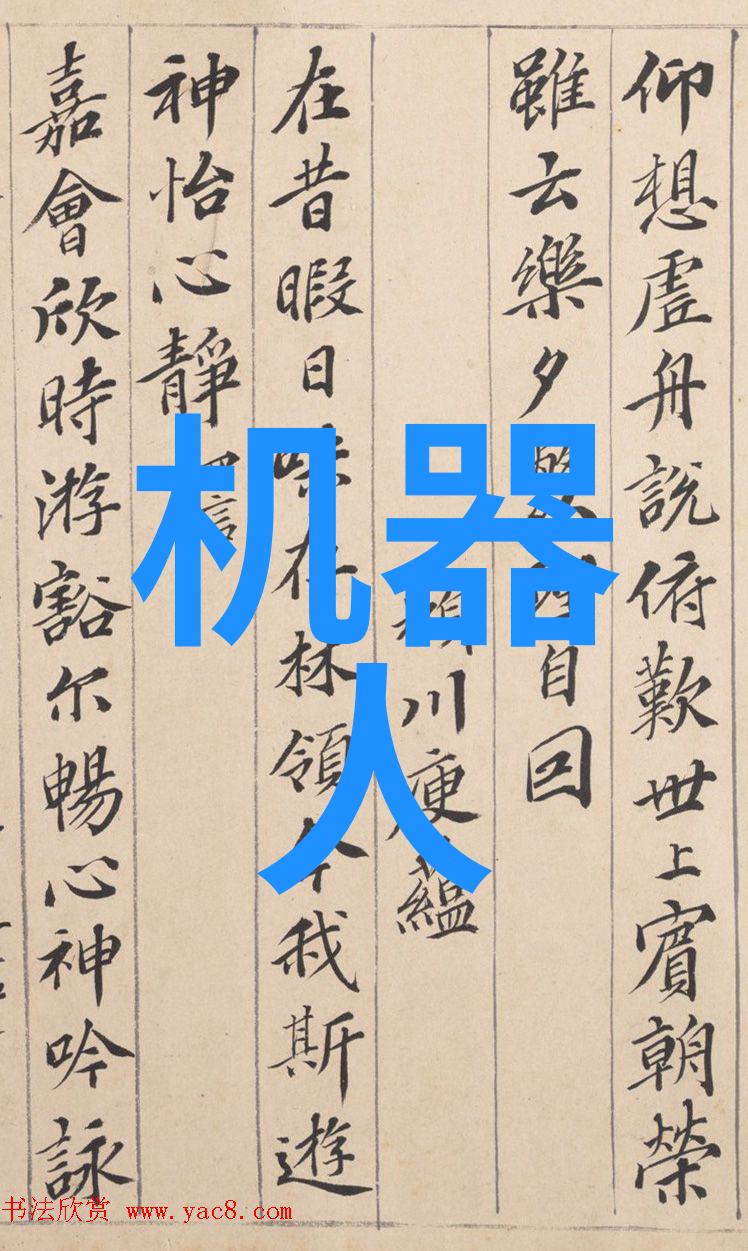 仰想虛舟說俯歎世上賓朝榮
雖云樂夕自回
川庾蘊
在昔暇日味存林領今我斯遊
神怡心靜
嘉會欣時游豁尔暢心神吟詠
机器
人
书法欣赏 www.yac8.com